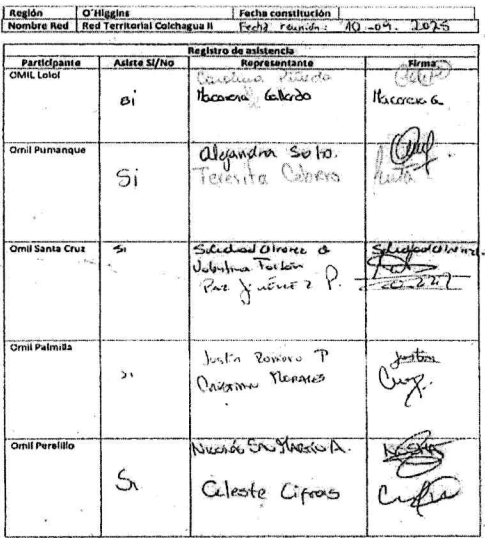 Región O'Higgins Fecha constitución
Nombre Red Red Territorial Colchagua II Fecha reunión: 10-04. 2025
Registro de asistencia
Participante Asiste SI/No Representante Firma
OMIL Lolol Si Carolina Pineda
Macarena Gallardo Macarena G.
Omil Pumanque Si Alejandra Soto.
Teresita Cabrera
Omil Santa Cruz Si Soledad Alvarez
Valentina
Paz Jiménez P.
Omil Palmilla Si Justin Romero P Justin
Cristian Morales
Omil Peralillo Si Nicolás San Martín A.
Celeste Cifras